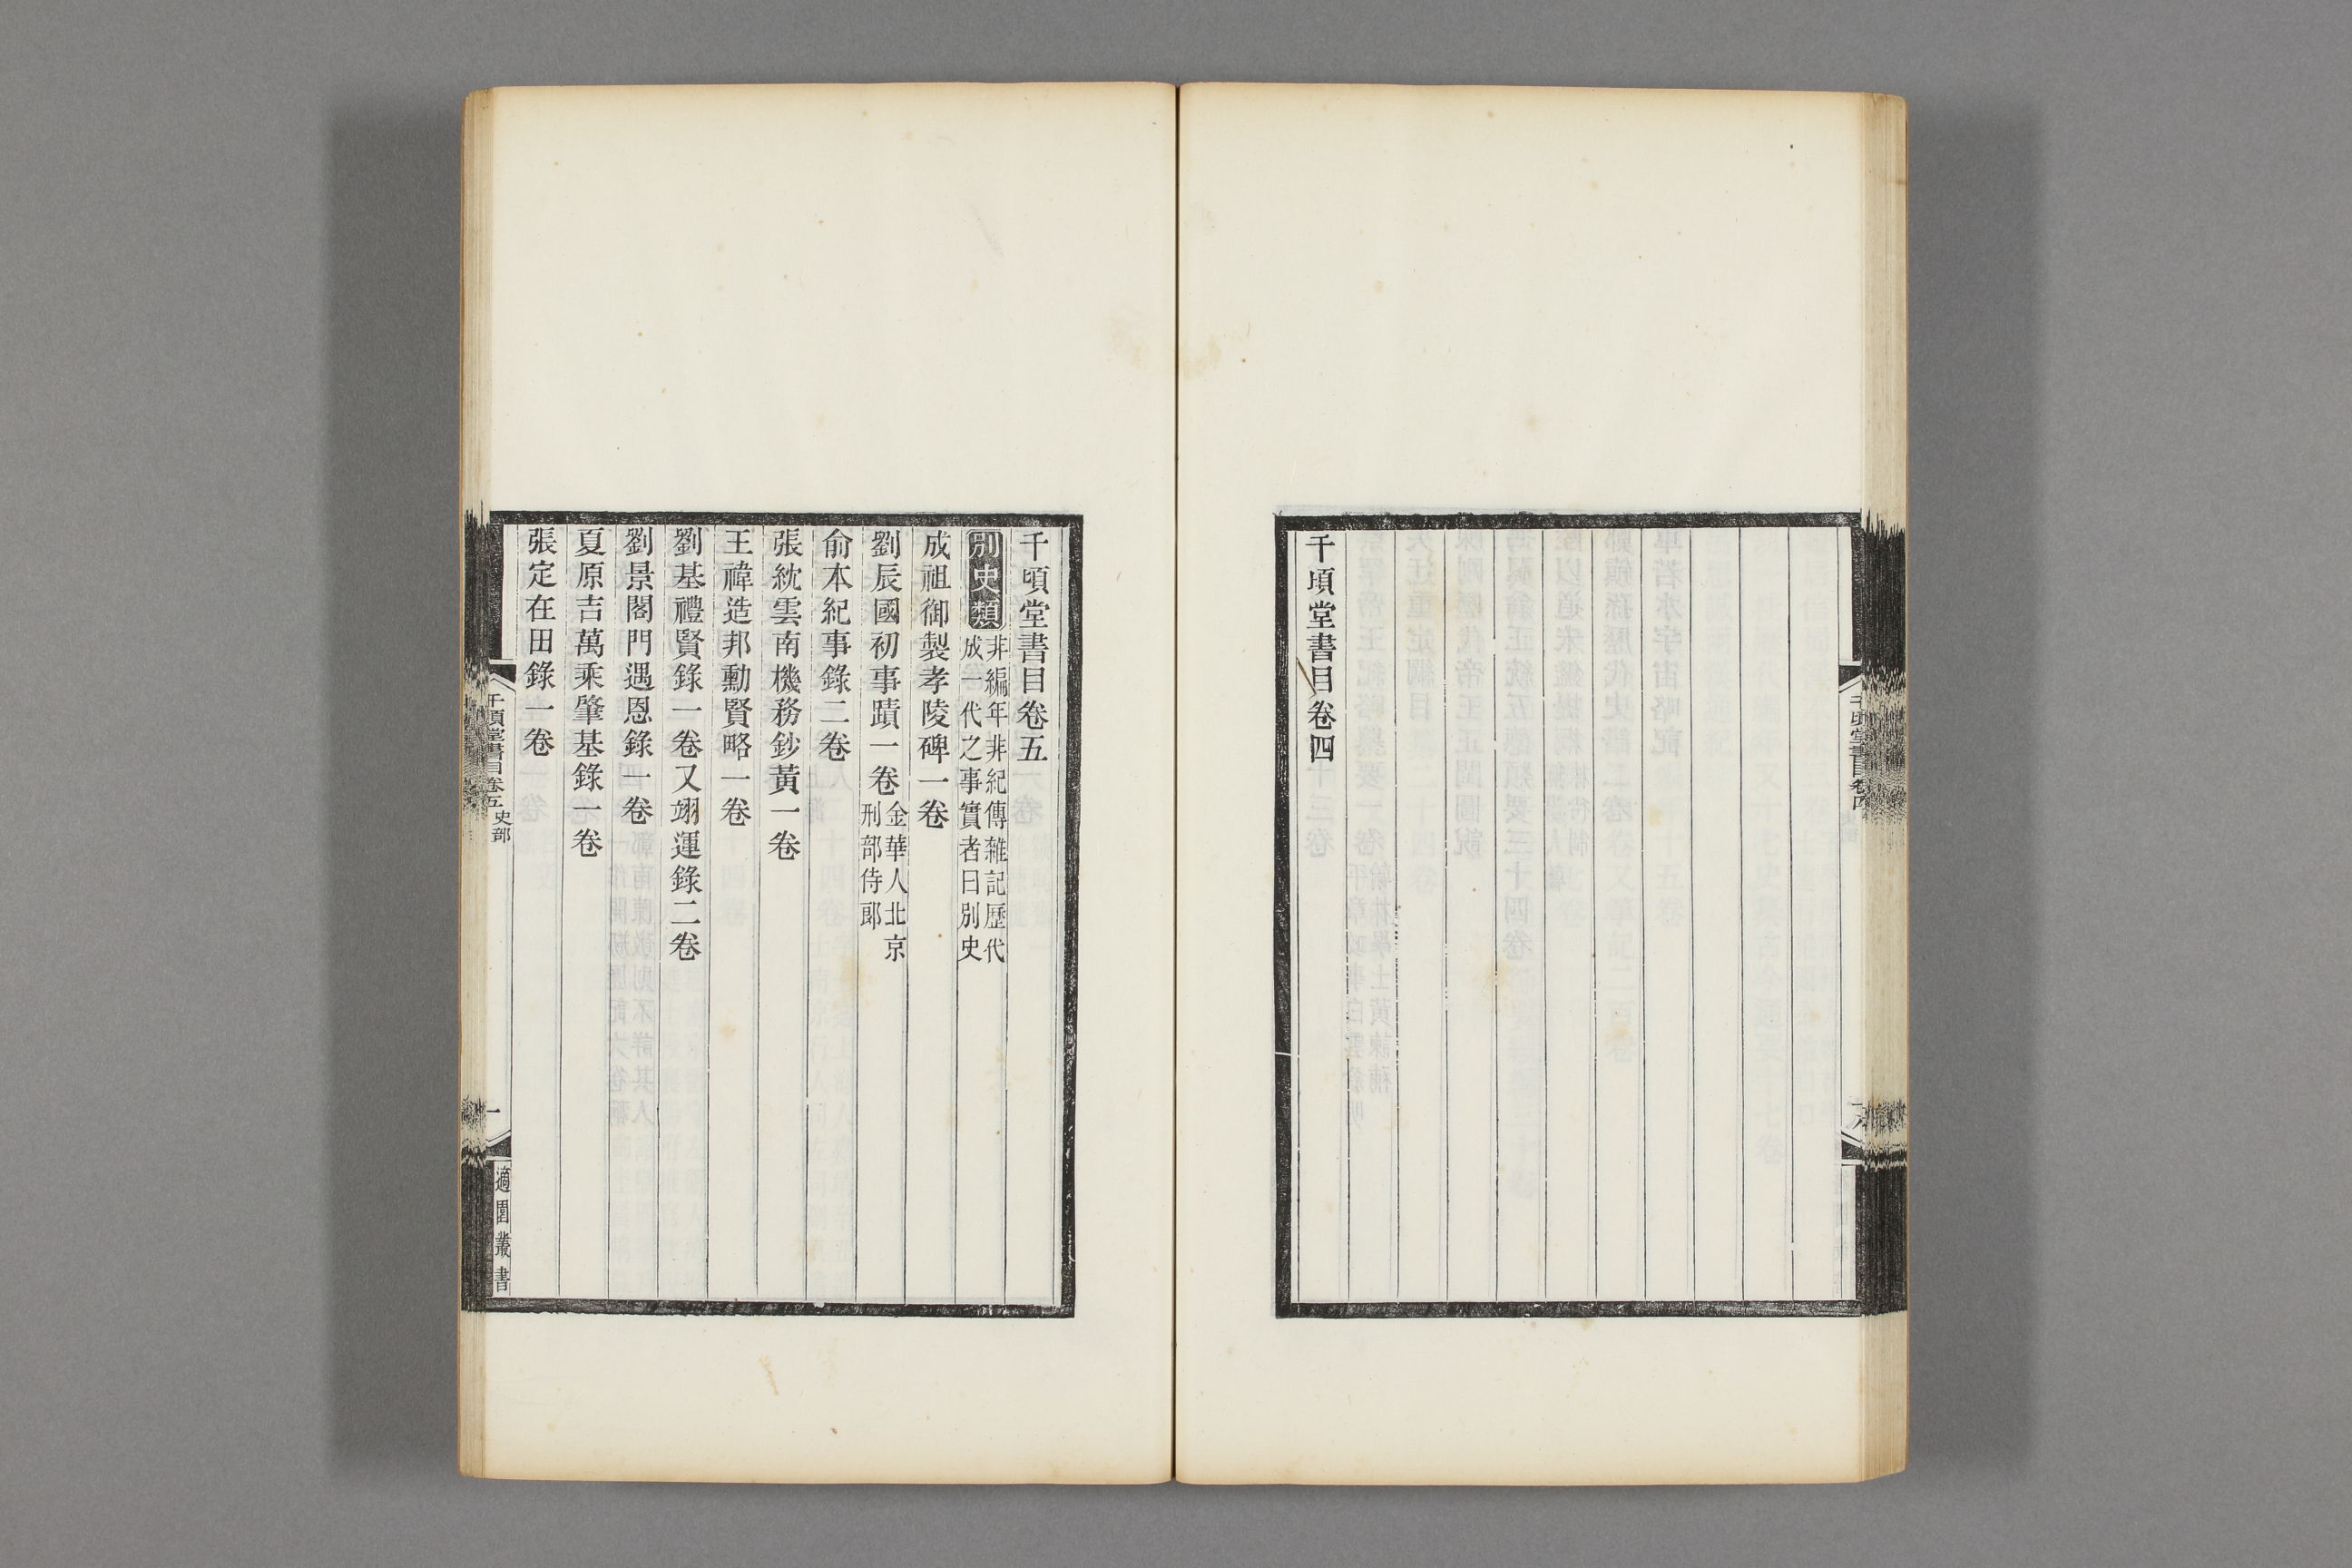 千頃堂書目卷四
千頃堂書目卷五
別史類 非編年非紀傳雜記歷代
成一代之事實者曰別史
成祖御製孝陵碑一卷
劉辰國初事蹟一卷 金華人北京
刑部侍郎
俞本紀事錄二卷
張紞雲南機務鈔黃一卷
王禕造邦勳賢略一卷
劉基禮賢錄一卷又翊運錄二卷
劉景閣門遇恩錄一卷
夏原吉萬乘肇基錄一卷
張定在田錄一卷
千頃堂書目卷五 史部
一
適園叢書